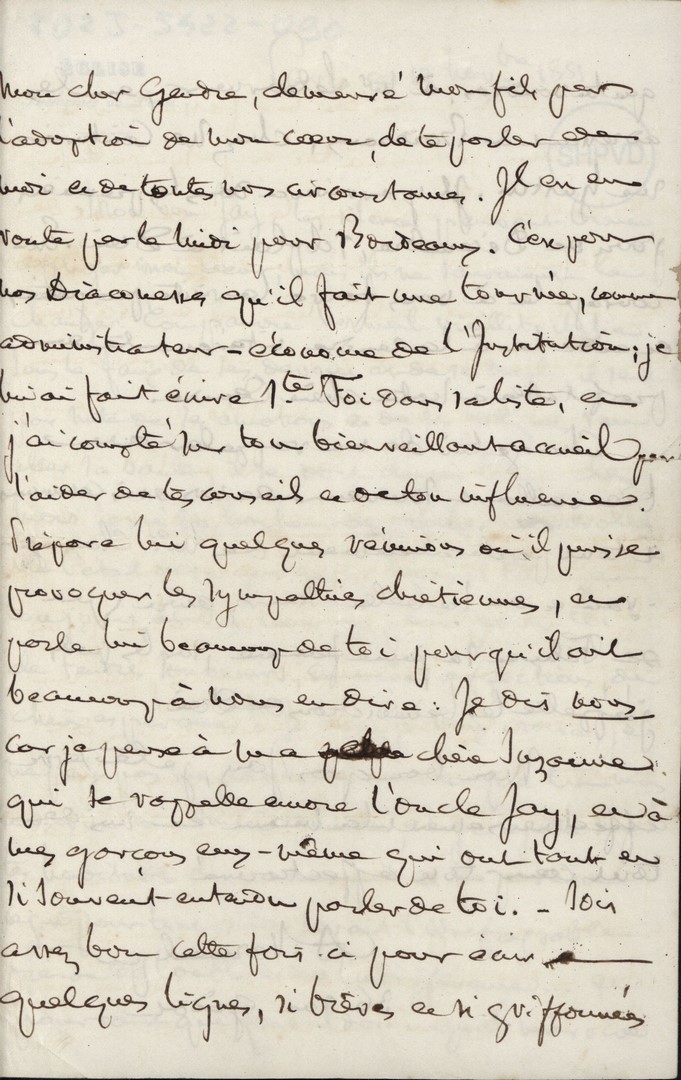 mon cher Gendre, demeuré mon fils par
l'adoption de mon cœur, de te parler de
moi et de toutes nos circonstances. Il est en
route par le midi pour Bordeaux. C'est pour
nos Diaconesses qu'il fait une tournée, comme
administrateur-économe de l'Institution; je
lui ai fait écrire Ste Foi dans sa liste, et
j'ai compté sur ton bienveillant accueil pour
l'aider de tes conseils et de ton influence.
Prépare lui quelques réunions où il puisse
provoquer les sympathies chrétiennes, et
parle lui beaucoup de toi pour qu'il ait
beaucoup à nous en dire: Je dis nous
car je pense à ma chère Suzanne
qui se rappelle encore l'oncle Jay, et à
mes garçons eux-même qui ont tant et
si souvent entendu parler de toi. - Sois
assez bon cette fois ci pour écrire
quelques lignes, si brèves et si griffonnées